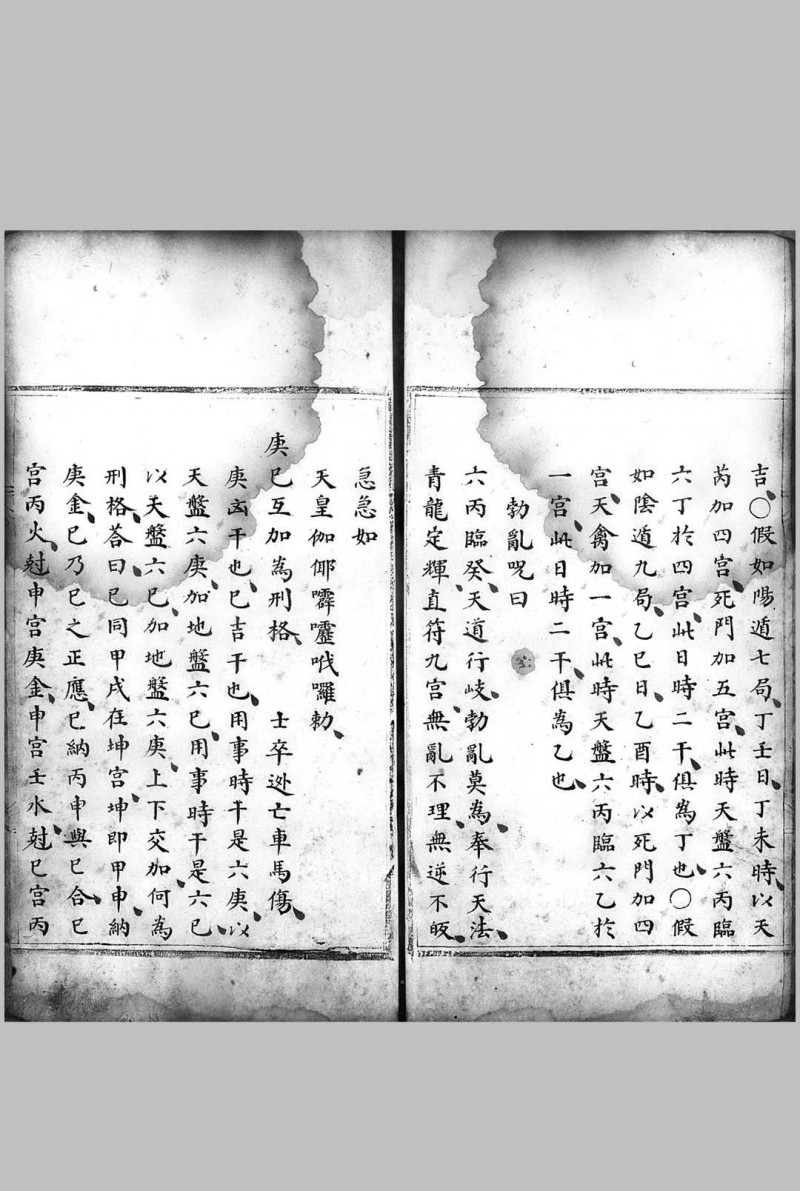 吉○假如陽遁七局丁壬日丁未時以天
芮加四宮死門加五宮此時天盤六丙臨
六丁於四宮此日時二干俱為丁也○假
如陰遁九局乙巳日乙酉時以死門加四
宮天禽加一宮此時天盤六丙臨六乙於
一宮此日時二干俱為乙也
勃亂呪曰
六丙臨癸天道行岐勃亂莫為奉行天法
青龍定輝直符九宮無亂不理無逆不皈
急急如
天皇伽㑘噼𡅖哦囉勅
庚巳互加為刑格 士卒迯亡車馬傷
庚㐫干也巳吉干也用事時干是六庚以
天盤六庚加地盤六巳用事時干是六巳
以天盤六巳加地盤六庚上下交加何為
刑格荅曰巳同甲戌在坤宮坤即甲申納
庚金巳乃巳之正應巳納丙申與巳合巳
宮丙火尅申宮庚金申宮壬水尅巳宮丙